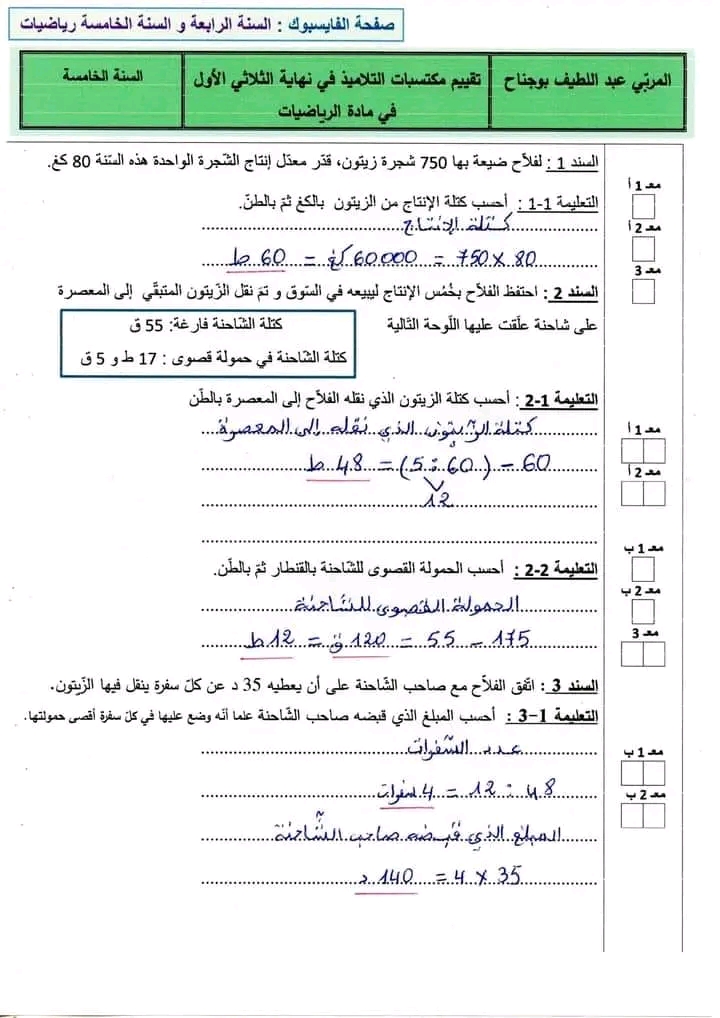 صفحة الفايسبوك : السنة الرابعة و السنة الخامسة رياضيات
المربّي عبد اللطيف بوجناح
تقييم مكتسبات التلاميذ في نهاية الثلاثي الأول
في مادة الرياضيات
السنة الخامسة
السند 1 : لفلاّح ضيعة بها 750 شجرة زيتون، قدّر معدّل إنتاج الشّجرة الواحدة هذه السّنة 80 كغ.
معـ 1 أ
التعليمة 1-1 : أحسب كتلة الإنتاج من الزيتون بالكغ ثمّ بالطنّ.
معـ 2 أ
كتلة الإنتاج
750 × 80 = 60000 كغ = 60 ط
معـ 3
السند 2 : احتفظ الفلاّح بخُمُس الإنتاج ليبيعه في السّوق و تمّ نقل الزّيتون المتبقّي إلى المعصرة
على شاحنة علّقت عليها اللّوحة التّالية
كتلة الشّاحنة فارغة: 55 ق
كتلة الشّاحنة في حمولة قصوى : 17 ط و 5 ق
التعليمة 1-2 : أحسب كتلة الزيتون الذي نقله الفلاّح إلى المعصرة بالطّن
معـ 1 أ
كتلة الزّيتون الذي نقله إلى المعصرة
60 – (60 : 5) = 48 ط
معـ 2 أ
12
معـ 1 ب
التعليمة 2-2 : أحسب الحمولة القصوى للشّاحنة بالقنطار ثمّ بالطّن.
معـ 2 ب
الحمولة القصوى للشّاحنة
175 – 55 = 120 ق = 12 ط
معـ 3
السند 3 : اتّفق الفلاّح مع صاحب الشّاحنة على أن يعطيه 35 د عن كلّ سفرة ينقل فيها الزّيتون.
التعليمة 1–3 : أحسب المبلغ الذي قبضه صاحب الشّاحنة علما أنّه وضع عليها في كلّ سفرة أقصى حمولتها.
عدد السّفرات
معـ 1 ب
48 : 12 = 4 سفرات
معـ 2 ب
المبلغ الذي قبضه صاحب الشّاحنة
35 × 4 = 140 د